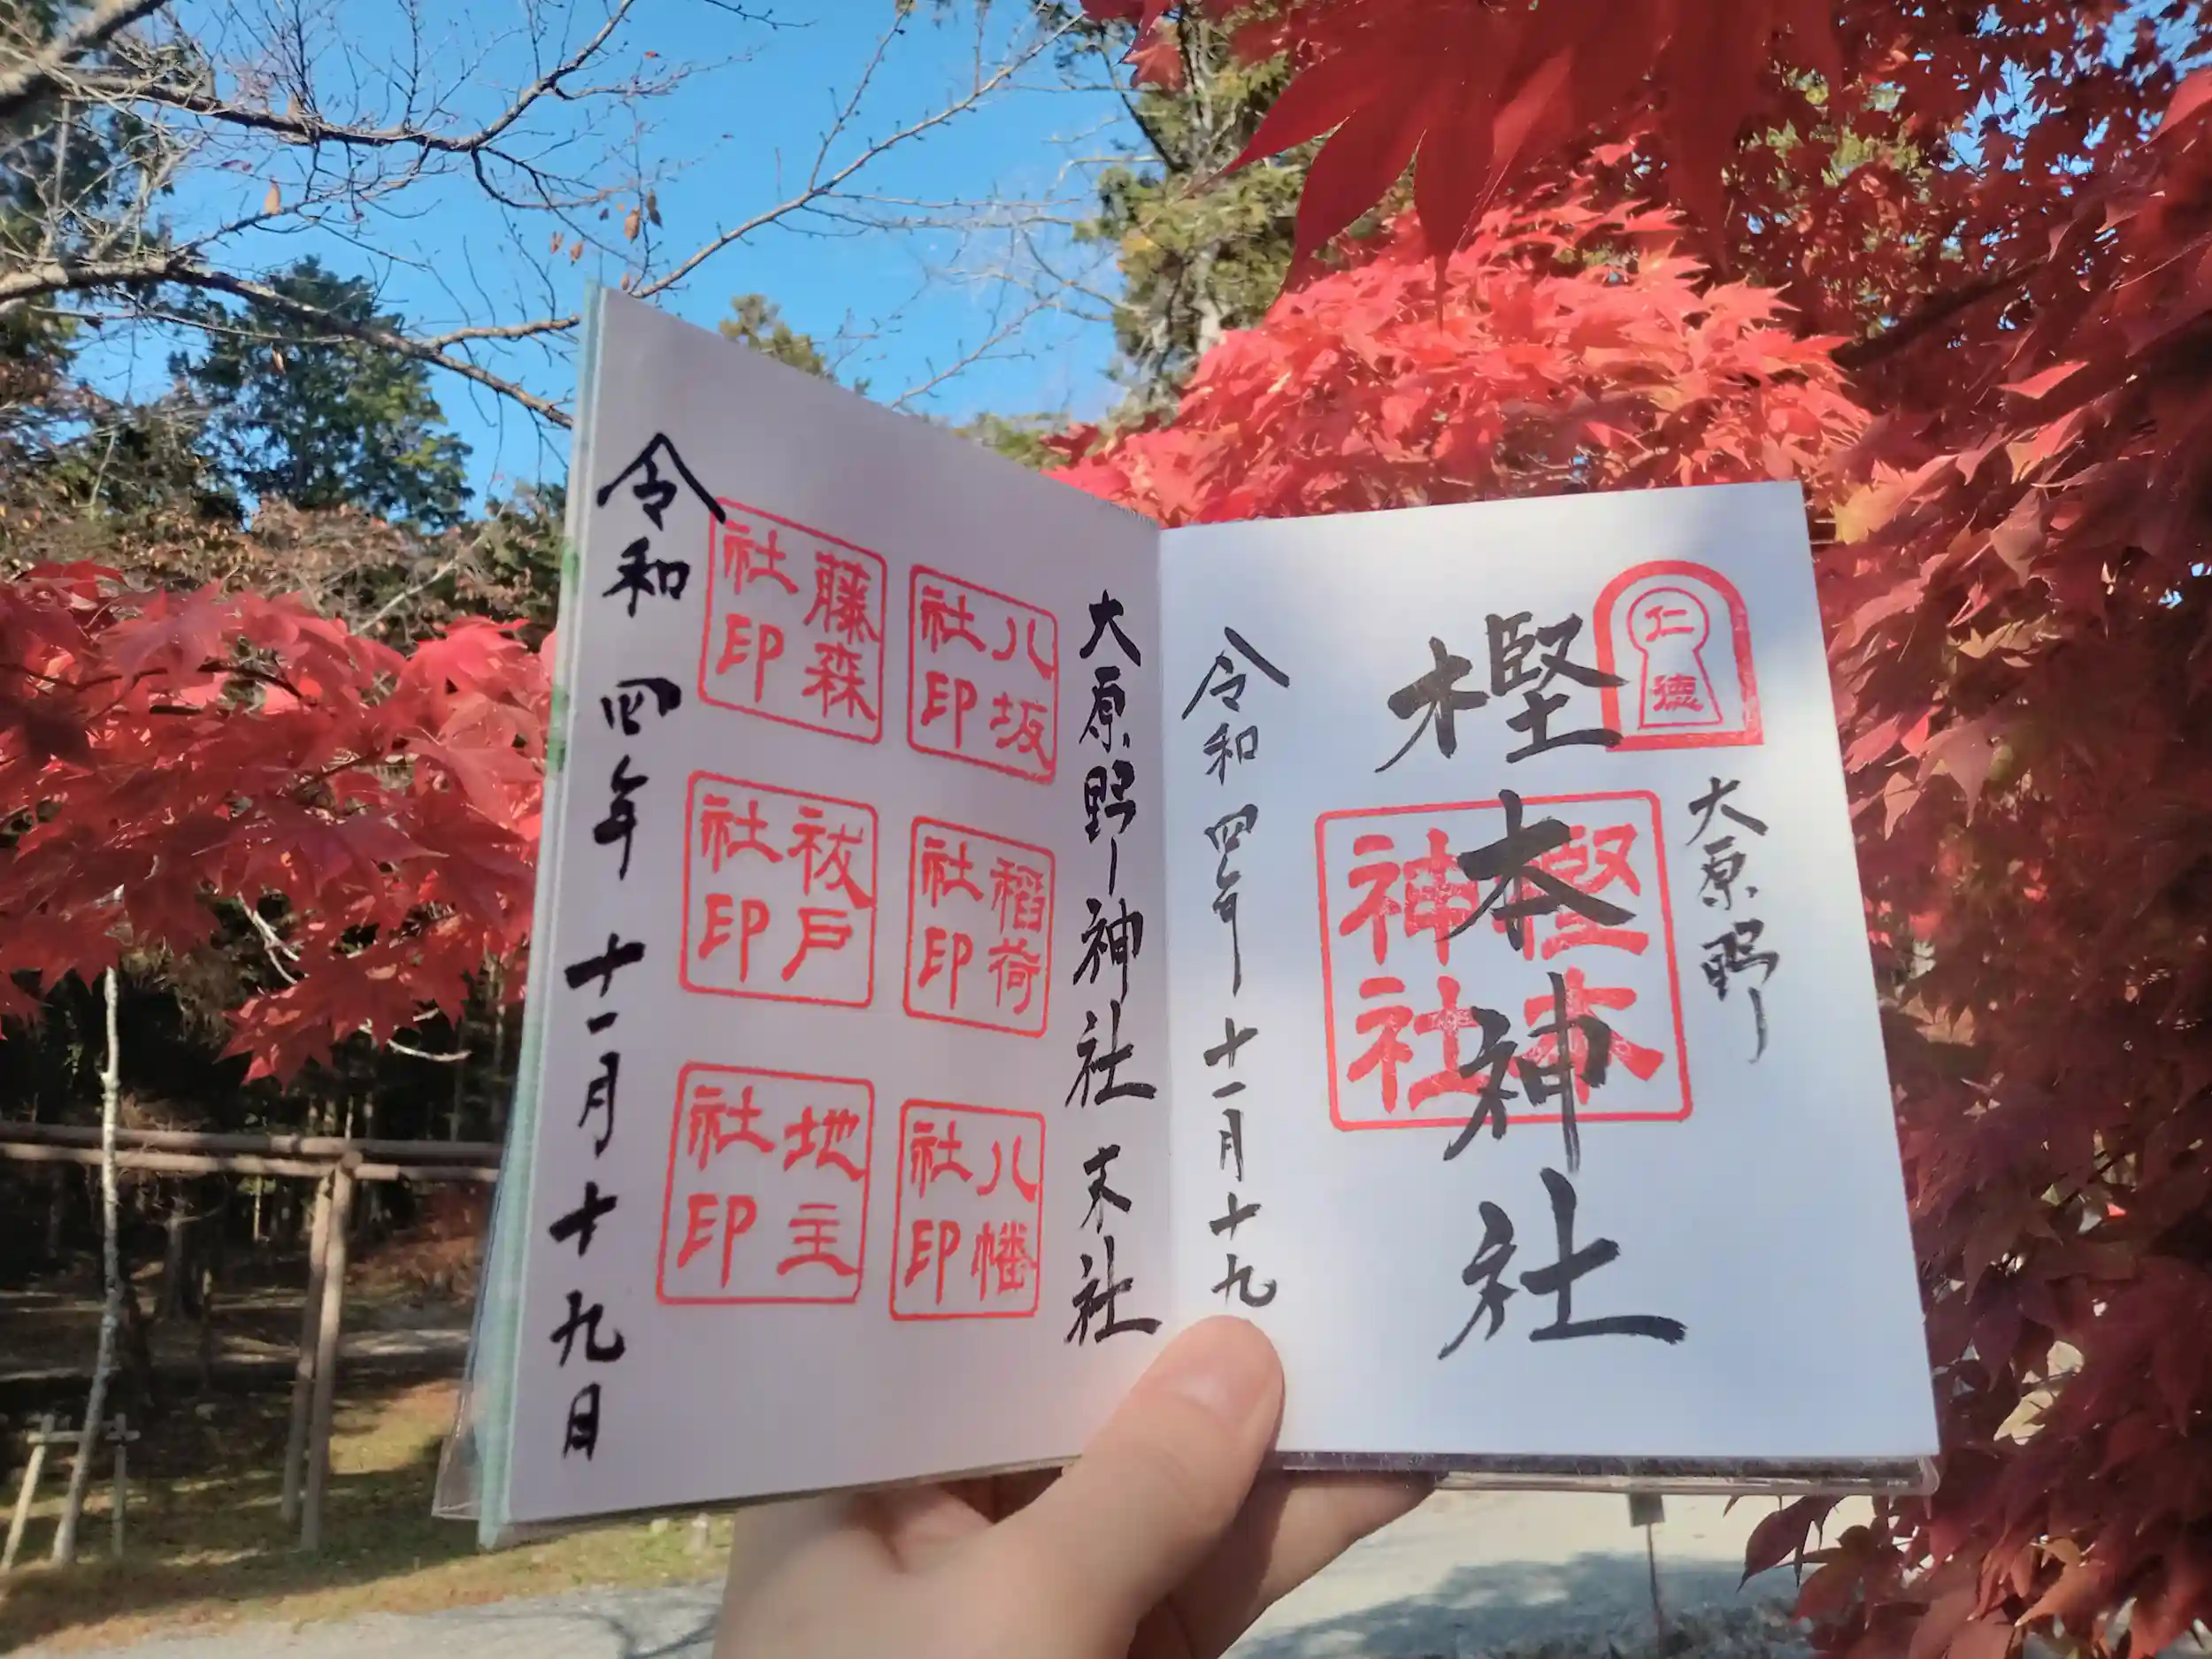 仁徳
大原野
樫本神社
樫本
神社
令和四年十一月十九
大原野神社末社
八坂
社印
稲荷
社印
八幡
社印
藤森
社印
祓戸
社印
地主
社印
令和四年十一月十九日